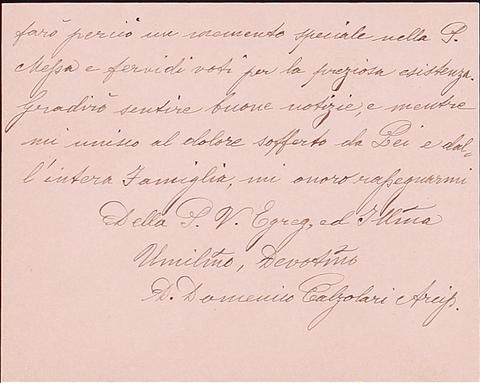 farò perciò un memento speciale nella S.
Messa e fervidi voti per la preziosa esistenza.
Gradirò sentire buone notizie, e mentre
mi unisco al dolore sofferto da Lei e dal-
l'intera Famiglia, mi onoro rassegnarmi
Della S. V. Egreg. ed Ill͞ma
Umil͞mo, Devot͞mo
D. Domenico Calzolari Arcip.